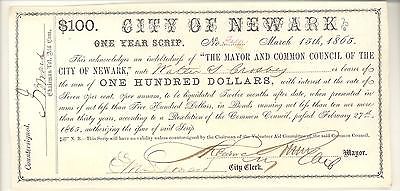 $100. CITY OF NEWARK.
ONE YEAR SCRIP. No. March 15th, 1865.
This acknowledges an indebtedness of "THE MAYOR AND COMMON COUNCIL OF THE
CITY OF NEWARK," unto Walter S. Crosbey or bearer of the
sum of ONE HUNDRED DOLLARS, with interest at the rate of
Seven per cent. per annum, to be liquidated Twelve months after date, when presented in
sums of not less than Five Hundred Dollars, in Bonds running not less than ten nor more
than thirty years, according to a Resolution of the Common Council, passed February 27th,
1865, authorizing the issue of said Scrip.
N. B. This Scrip will have no validity unless countersigned by the Chairman of the Volunteer Aid Committee of the said Common Council.
Mayor.
City Clerk.
Countersigned,
Chairman Vol. Aid Com.